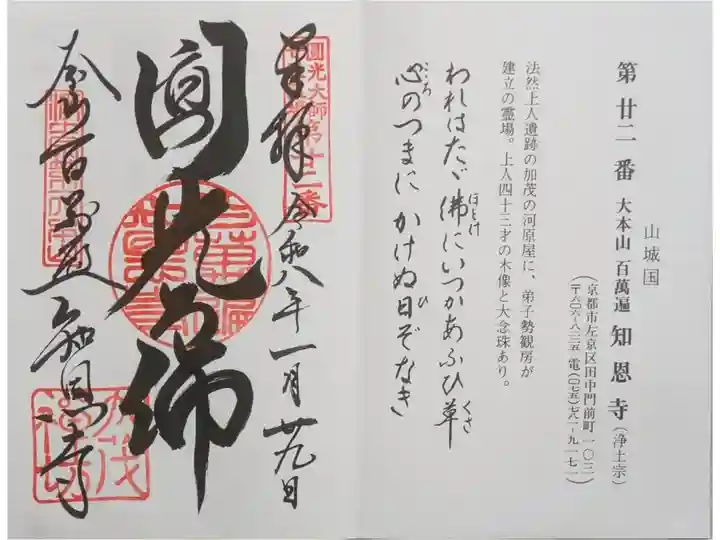 山城国
第廿二番 大本山 百萬遍 知恩寺(浄土宗)
(京都市左京区田中門前町一〇三
〒六〇六-八二二五 電(〇七五)七八一-九一七一)
法然上人遺跡の加茂の河原屋に、弟子勢観房が
建立の霊場。上人四十三才の木像と大念珠あり。
われはたゞ佛にいつかあふひ草
ほとけ
くさ
心のつまに かけぬ日ぞなき
こころ
ひ
奉拝 令和八年一月廿九日
圓光大師第廿二番
圓光佛
大本山百萬遍知恩寺